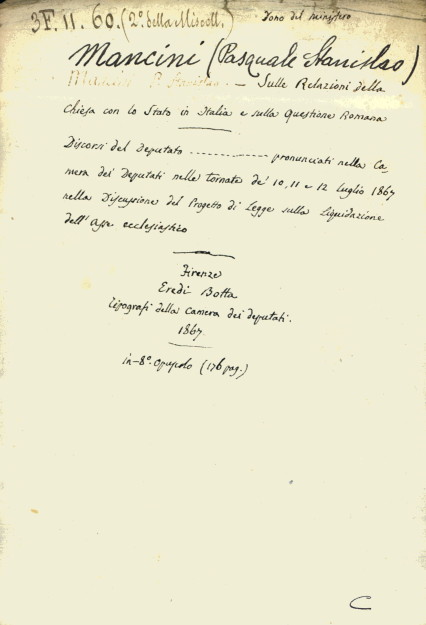 3F. 11. 60. (2º. della Miscell.)
Dono del ministero
Mancini (Pasquale Stanislao)
Mancini P. Stanislao. — Sulle Relazioni della
Chiesa con lo Stato in Italia e sulla Questione Romana
Discorsi del Deputato ---------------- pronunciati nella Ca-
mera dei Deputati nelle tornate de' 10, 11 e 12 Luglio 1867
nella Discussione del Progetto di Legge sulla Liquidazione
dell'Asse ecclesiastico
Firenze
Eredi Botta
tipografi della Camera dei deputati.
1867.
in-8º. opuscolo (176 pag.)
C